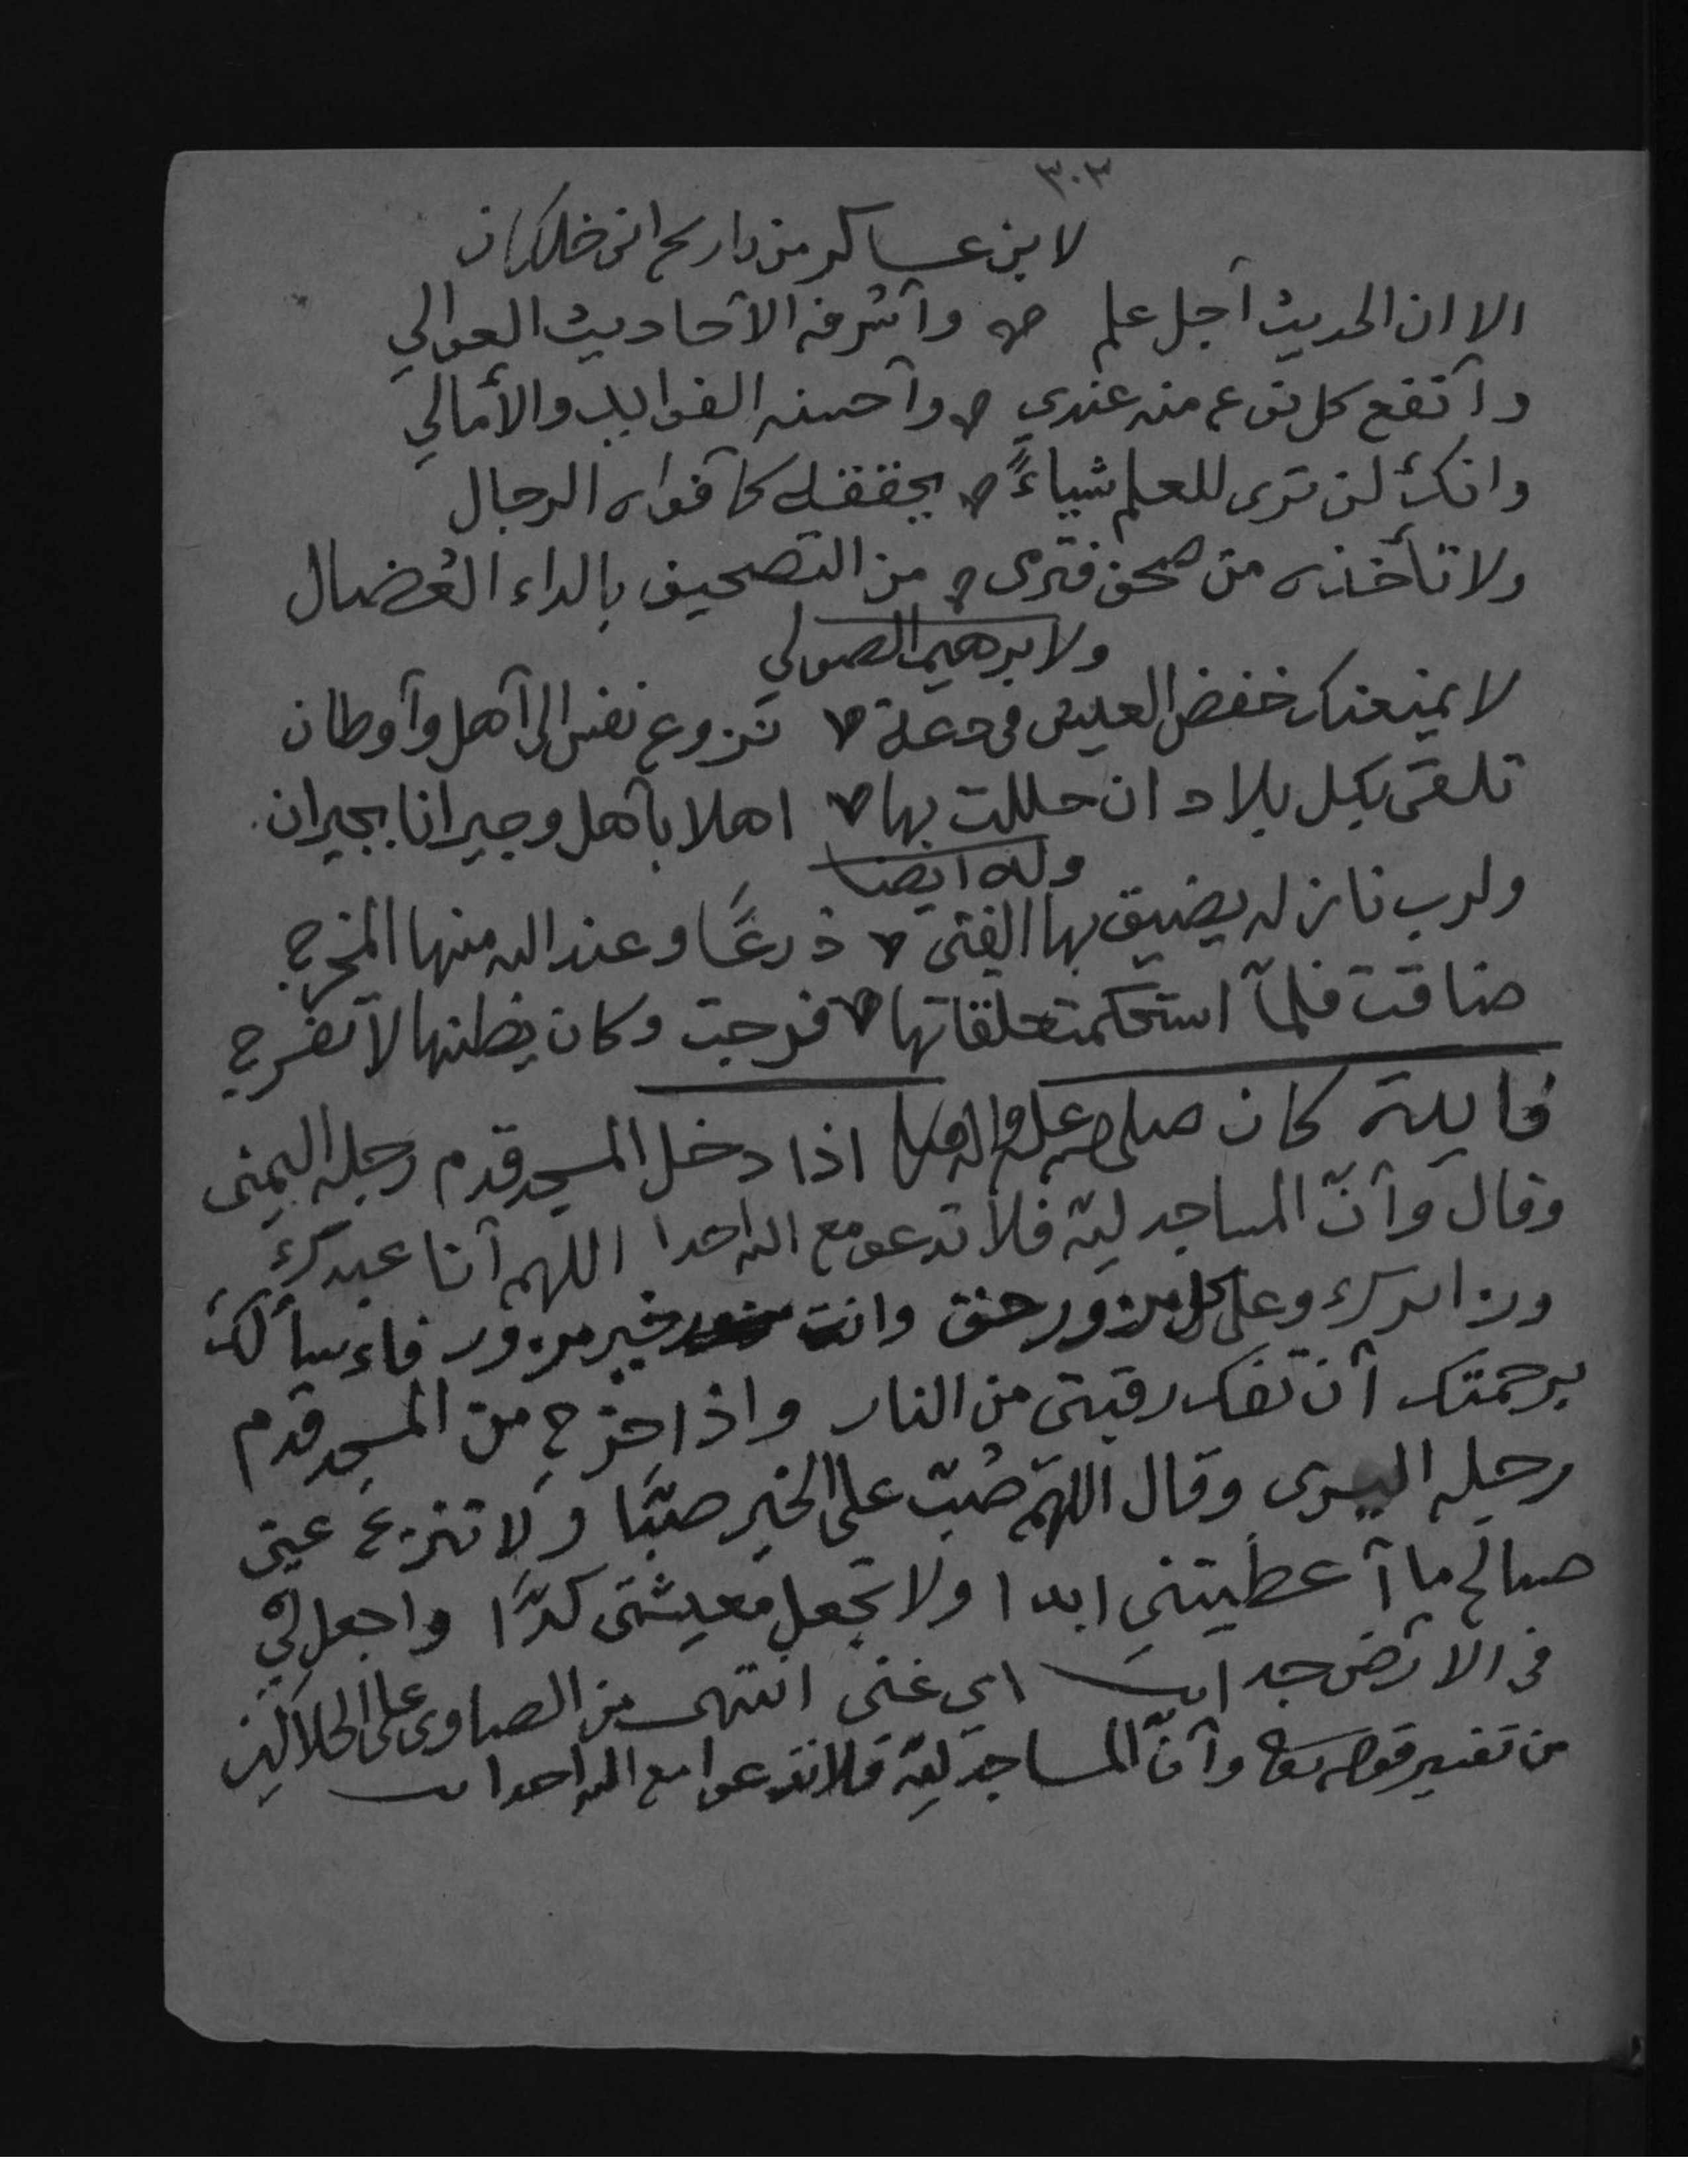 ٣٠٣
لابن عساكر من تاريخ ابن خلكان
الا ان الحديث أجل علم وأشرفه الأحاديث العوالي
وأنفع كل نوع منه عندي وأحسنه الفوايد والأمالي
وانك لن ترى للعلم شياءً يحققه كأفواه الرجال
ولا تأخذه من صحف فترمى من التصحيف بالداء العُضال
ولابرهيم الصولي
لا يمنعنك خفض العيش في دعة نزوع نفس الى أهل وأوطان
تلقى بكل بلاد ان حللت بها اهلا بأهل وجيرانا بجيران
وله ايضا
ولرب نازله يضيق بها الفتى ذرعًا وعند الله منها المخرج
ضاقت فلمآ استحكمت حلقاتها فرجت وكان يظنها لا تفرج
فايدة كان صلى الله عليه واله وسلم اذا دخل المسجد قدم رجله اليمنى
وقال وأنّ المساجد لله فلا تدعو مع الله احدا اللهم أنا عبدك
وزايرك وعلى كل مزور حق وانت خير مزور فاءسأ لك
برحمتك أن تفك رقبتي من النار واذا خرج من المسجد قدم
رجله اليسرى وقال اللهم صُبّ علي الخير صبًّا ولا تنزع عني
صالح ما أعطيتني ابدا ولا تجعل معيشتي كدًّا واجعل لي
في الارض جدا اي غنى انتهى من الصاوى على الجلالين
من تفسير قوله تعا وأنّ المساجد لله فلا تدعوا مع الله احدا